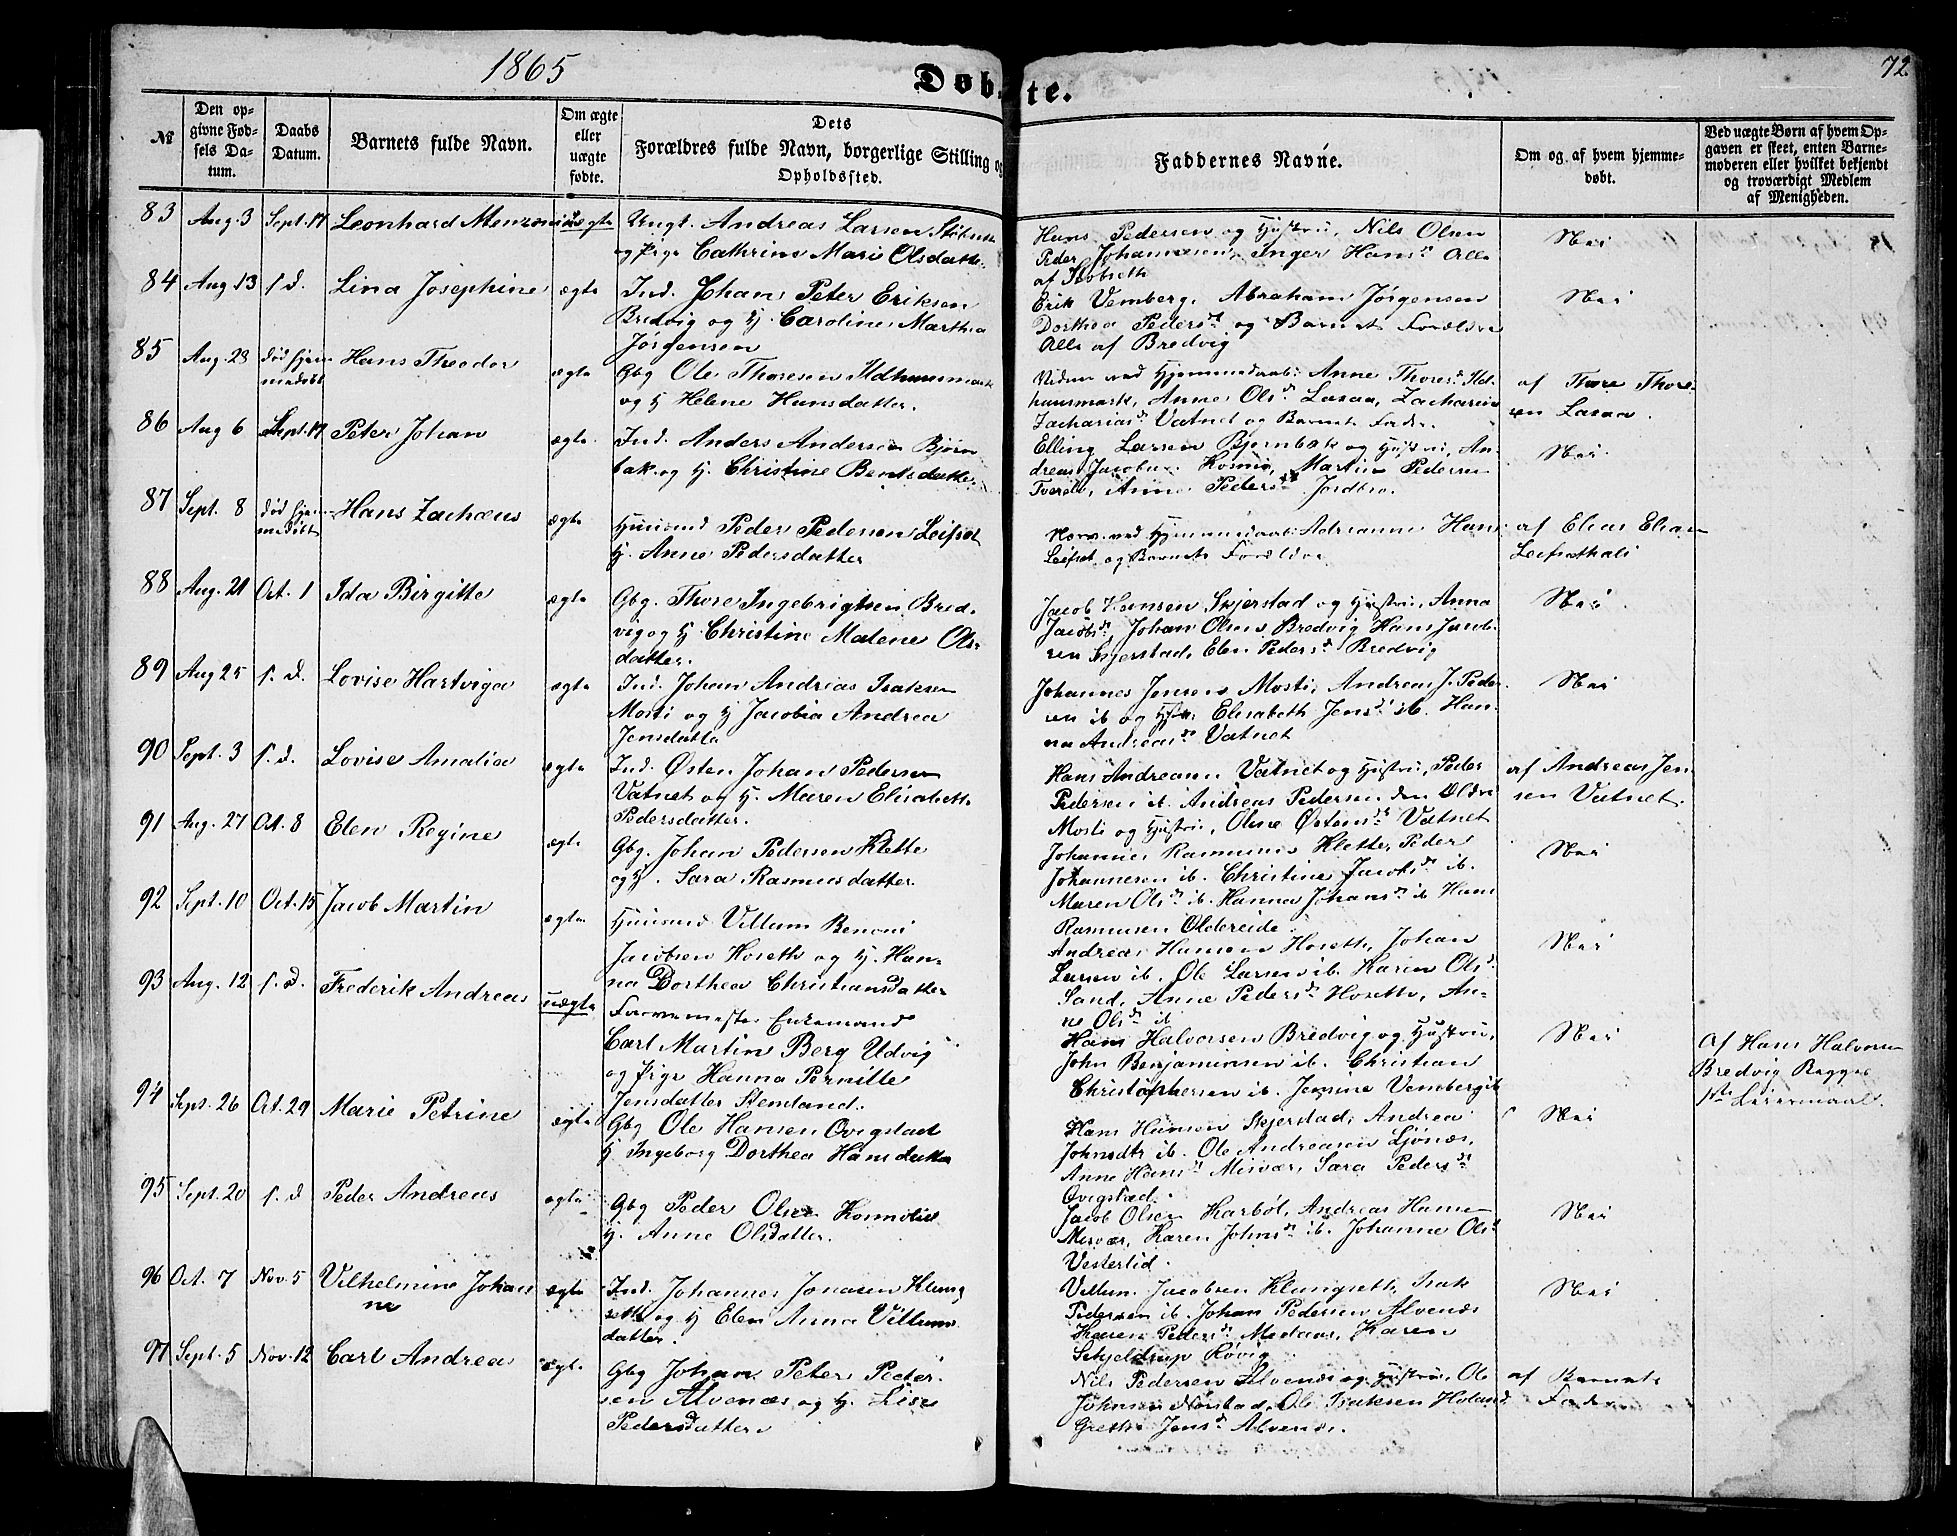 1865
Døbte.
72
№
Den opgivne Fødsels Datum.
Daabs Datum.
Barnets fulde Navn.
Om ægte eller uægte fødte.
Dets Forældres fulde Navn, borgerlige Stilling og Opholdssted.
Faddernes Navne.
Om og af hvem hjemmedøbt.
Ved uægte Børn af hvem Opgaven er skeet, enten Barnemoderen eller hvilket bekjendt og troværdigt Medlem af Menigheden.
83 Aug. 3 Sept. 17 Leonhard uægte Ungk. Andreas Larsen
og Pige Cathrine Marie Olsdatter
Hans Pedersen og Hustru, Nils Olsen
Peder Johannesen, Inger Hansdr Alle
af
Nei
84 Aug 13 s. d. Lina Josephine ægte Ind. Johan Peter Eriksen
Bredvig og H. Caroline Marthea
Jørgensen
Erik Vemberg, Abraham Jørgensen
Dorthea Pedersdr og Barnets Forældre
Alle af Bredvig
Nei
85 Aug. 28 død hjemmedøbt Hans Theodor ægte Gbg Ole Thoresen Ildhuusmark
og H Helene Hansdatter.
Vidner ved Hjemmedaab: Anne Thoresdr Ildhuusmark, Anne Olsdr Laxaa, Zacharine
Zachariasdr Vatnet og Barnets Fader
af Thore Thoresen Laxaa.
86 Aug 6 Sept. 17 Peter Johan ægte Ind. Anders Andersen Bjørnbak og H. Christine Bentsdatter
Elling Larsen Bjørnbak og Hustru, Andreas Jacobsen Kosmo, Martin Pedersen
Tverelv, Anne Pedersdr Jordbro.
Nei
87 Sept. 8 død hjemmedøbt Hans Zachæus ægte Huusmd Peder Pedersen Leifset
H. Anne Pedersdatter
ved Hjemmedaab: Adrianne Hans
Leifset og Barnets Forældre
af Elias Elias
88 Aug. 21 Oct. 1 Ida Birgitte ægte Gbg. Thore Ingebrigtsen Bredvig og H Christine Malene Olsdatter.
Jacob Hansen Skjerstad og Hustru, Anna
Jacobsdr, Johan Olsen Bredvig Hans Jacobsen Skjerstad, Elen Pedersdr Bredvig
Nei
89 Aug 25 s. d. Lovise Hartviga ægte Ind. Johan Andreas Isaksen
Mosti og H Jacobia Andrea
Jensdatter
Johannes Jensen Mosti, Andreas J. Pedersen ib og Hstr. Elisabeth Jensdr ib. Hanna Andreasdr Vatnet
Nei
90 Sept. 3 s. d. Lovise Amalia ægte Ind. Østen Johan Pedersen
Vatnet og H. Maren Elisabeth
Pedersdatter.
Hans Andreasen Vatnet og Hustru, Peder
Pedersen ib. Andreas Pedersen den Ældre
Mosti og Hustru, Oline Østensdr Vatnet
af Andreas Jensen Vatnet.
91 Aug. 27 Oct. 8 Elen Regine ægte Gbg. Johan Pedersen Klette
og H. Sara Rasmusdatter.
Johannes Rasmussen Klette, Peder
Johannesen ib. Christine Jacobsdr ib.
Maren Olsdr ib. Hanna Johansdr ib Hans
Rasmussen Oldereide.
Nei
92 Sept. 10 Oct. 15 Jacob Martin ægte Huusmd Villum Benoni
Jacobsen Hoseth og H. Hanna Dorthea Christiansdatter
Andreas Hansen Hoseth, Johan
Larsen ib. Ole Larsen ib. Karen Olsdr
Sand, Anne Pedersdr Hoseth, Anne Olsdr ib
Nei
93 Aug. 12 s. d. Frederik Andreas uægte Enkemand
Carl Martin Berg Udvig
og Pige Hanna Pernille
Jensdatter Remland.
Hans Halvorsen Bredvig og Hustru,
John Benjaminsen ib. Christian
Christophersen ib. Jensine Vembergib
Nei
Af Hans Halvorsen
Bredvig Begges
1ste Leiermaal.
94 Sept. 26 Oct. 29 Marie Petrine ægte Gbg Ole Hansen Øvigstad
H. Ingeborg Dorthea Hansdatter
Hans Hansen Skjerstad, Andrea
Johnsdtr ib. Ole Andreasen Ljønæs,
Anne Hansdr Misvær, Sara Pedersdr
Øvigstad.
Nei
95 Sept. 20 s. d Peder Andreas ægte Gbg Peder Olsen Kosmolid
H. Anne Olsdatter.
Jacob Olsen Karbøl, Andreas Hansen
Misvær, Karen Johnsdr ib. Johanne Olsd
Vesterlid.
Nei
96 Oct. 7 Nov. 5 Vilhelmine Johanne ægte Ind. Johannes Jonasen Klungseth og H Elen Anna Villumsdatter.
Villum Jacobsen Klungseth, Isak
Pedersen ib. Johan Pedersen Alvenæs
Karen Pedersdr Medaas, Karen
Schjeldrup Røvig
Nei
97 Sept. 5 Nov. 12 Carl Andrea ægte Gbg Johan Peter Pedersen Alvenæs og H. Lise
Pedersdatter.
Nils Pedersen Alvenæs og Hustru, Ole
Johnsen, Ole Isaksen Holand
Grethe Jensdr Alvenæs.
af Barnets
Fader